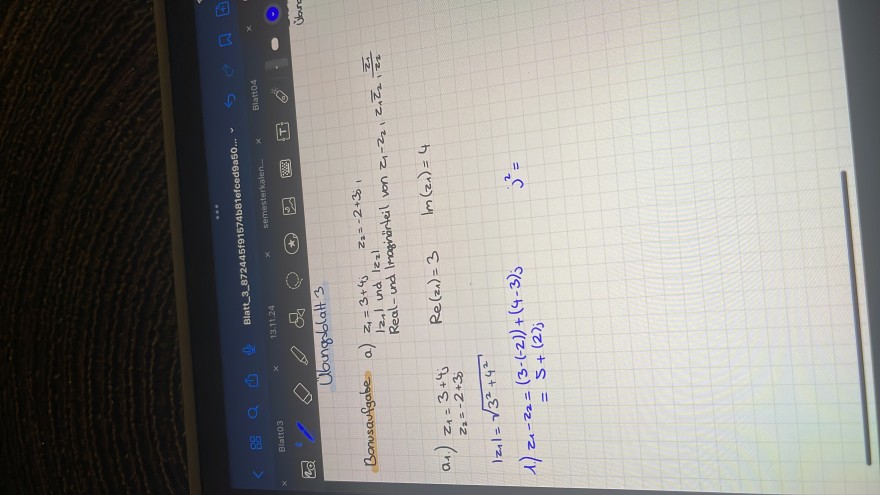 Blatt_3_872445f91574b81efced9a50...
Blatt03
13.11.24
semesterkalen...
Blatt04
Übungsblatt 3
Bonusaufgabe a) z₁ = 3+4j z₂ = -2+3j,
|z₁| und |z₂|
Real- und Imaginärteil von z₁-z₂, z₁z̅₂, z̅₁/z₂
a₁) z₁ = 3+4j Re(z₁) = 3 Im(z₁) = 4
z₂ = -2+3j
|z₁| = √3²+4²
1) z₁-z₂ = (3-(-2))+(4-3)j j² =
= 5 + (2)j